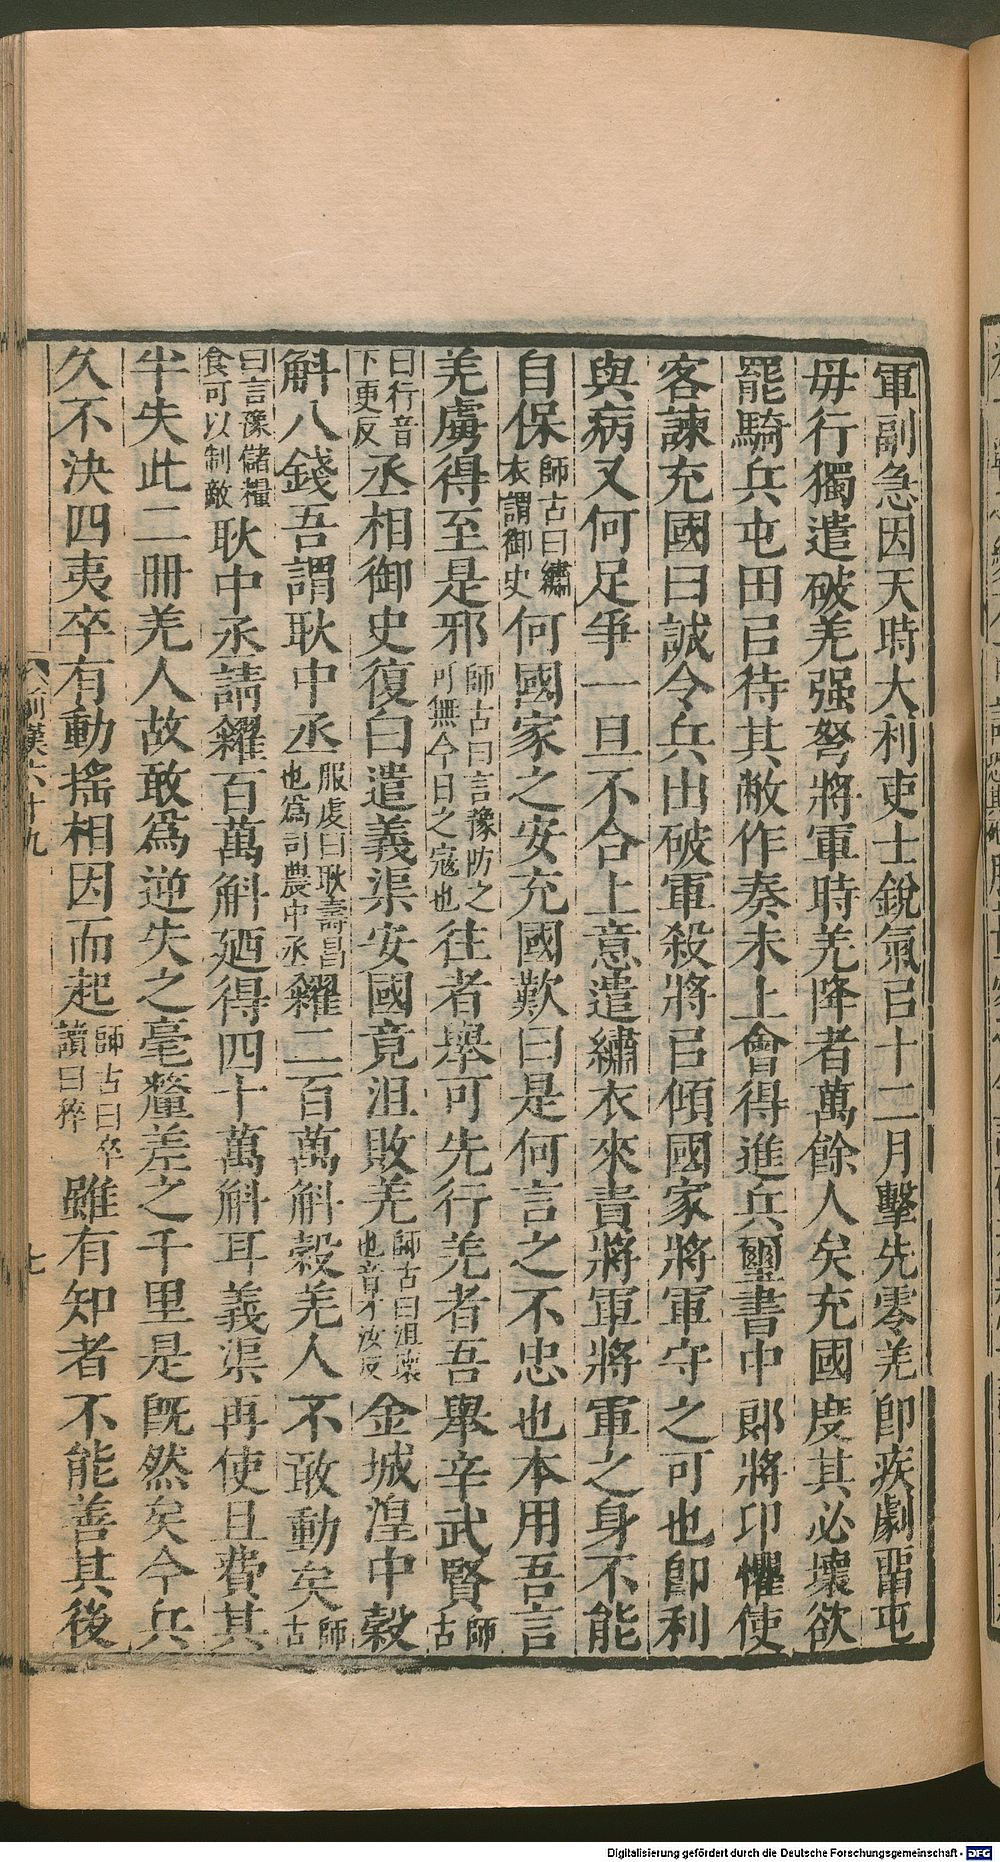 軍副急因天時大利吏士銳氣㠯十二月擊先零羌卽疾劇畱屯
毋行獨遣破羌强弩將軍時羌降者萬餘人矣充國度其必壞欲
罷騎兵屯田㠯待其敝作奏未上會得進兵璽書中郎將卬懼使
客諫充國曰誠令兵出破軍殺將㠯傾國家將軍守之可也卽利
與病又何足爭一旦不合上意遣繡衣來責將軍將軍之身不能
自保師古曰繡衣謂御史何國家之安充國歎曰是何言之不忠也本用吾言
羌虜得至是邪師古曰言豫防之可無今日之寇也往者舉可先行羌者吾舉辛武賢師古
曰行音下更反丞相御史復白遣義渠安國竟沮敗羌師古曰沮壞也音才汝反金城湟中穀
斛八錢吾謂耿中丞服虔曰耿壽昌也爲司農中丞糴二百萬斛穀羌人不敢動矣師古
曰言豫儲糧食可以制敵耿中丞請糴百萬斛廼得四十萬斛耳義渠再使且費其
半失此二冊羌人故敢爲逆失之毫釐差之千里是旣然矣今兵
久不決四夷卒有動搖相因而起師古曰卒讀曰猝雖有知者不能善其後
前漢六十九
七
Digitalisierung gefördert durch die Deutsche Forschungsgemeinschaft - DFG